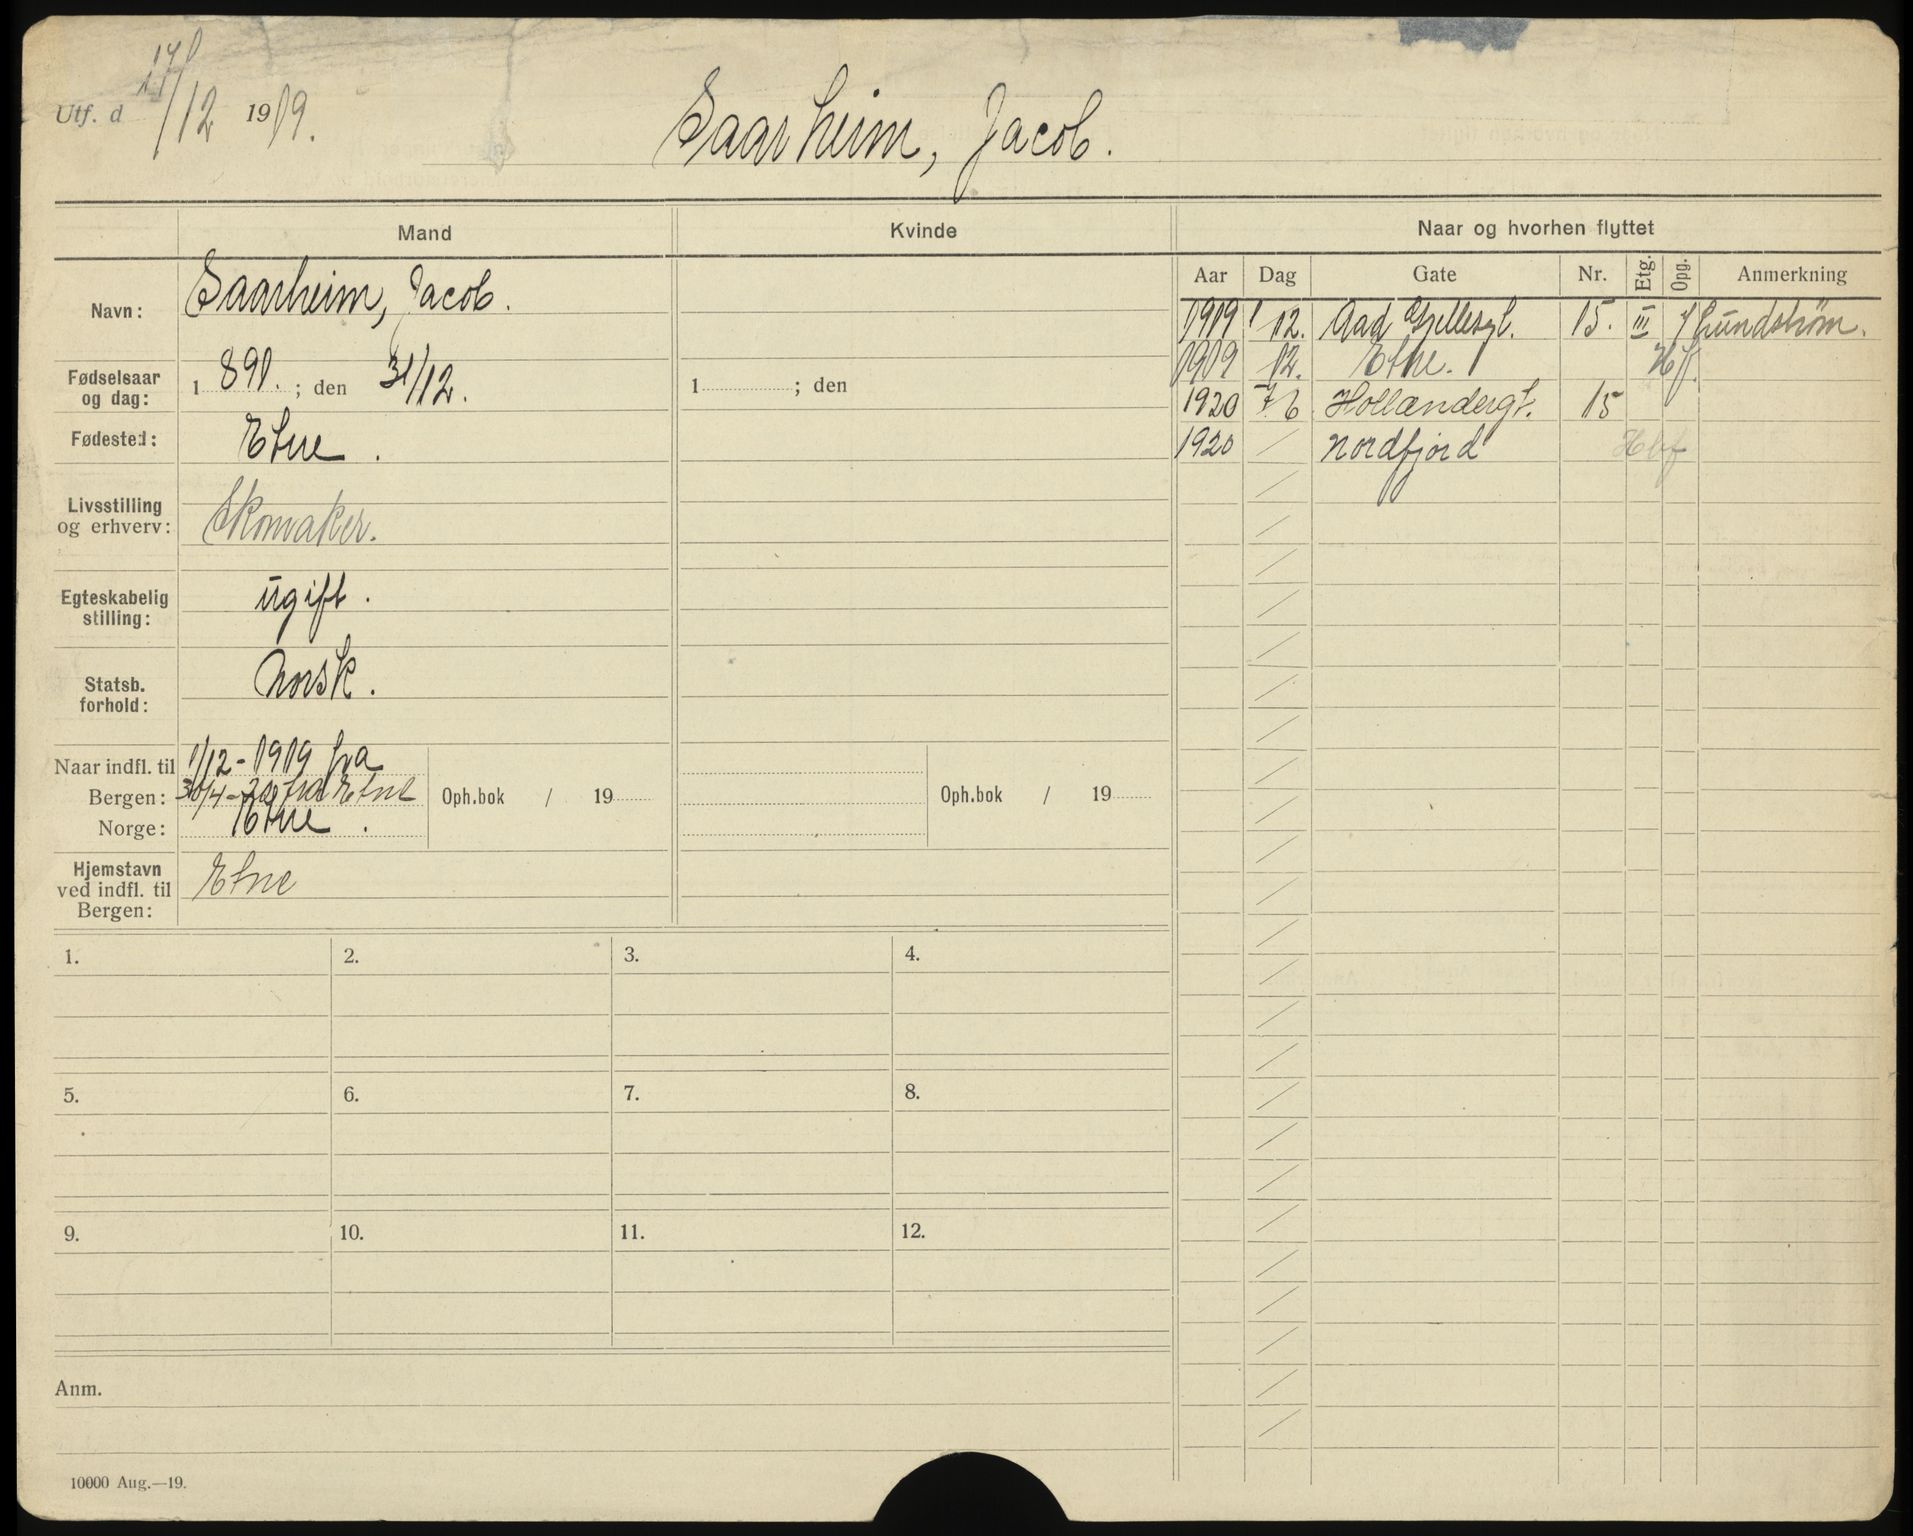 Utf. d /12 1919.
Saarheim, Jacob.
Mand Kvinde Naar og hvorhen flyttet
Aar Dag Gate Nr. Etg. Opg. Anmerkning
Navn: Saarheim, Jacob.
1919 1/12. Aad Gjellesgt. 15. III Lundstrøm.
1919 12. Etne.
Fødselsaar og dag: 1891. ; den 31/12. 1 ; den
1920 Hollændergt. 15
Fødested: Etne.
1920 / Nordfjord
Livsstilling og erhverv: Skomaker.
Egteskabelig stilling: ugift.
Statsb. forhold: norsk.
Naar indfl. til 1/12-1919 fra
Bergen: 30/4-20 fra Etne Oph.bok / 19 Oph.bok / 19
Norge: Etne.
Hjemstavn ved indfl. til Bergen: Etne
1. 2. 3. 4.
5. 6. 7. 8.
9. 10. 11. 12.
Anm.
10000 Aug.—19.